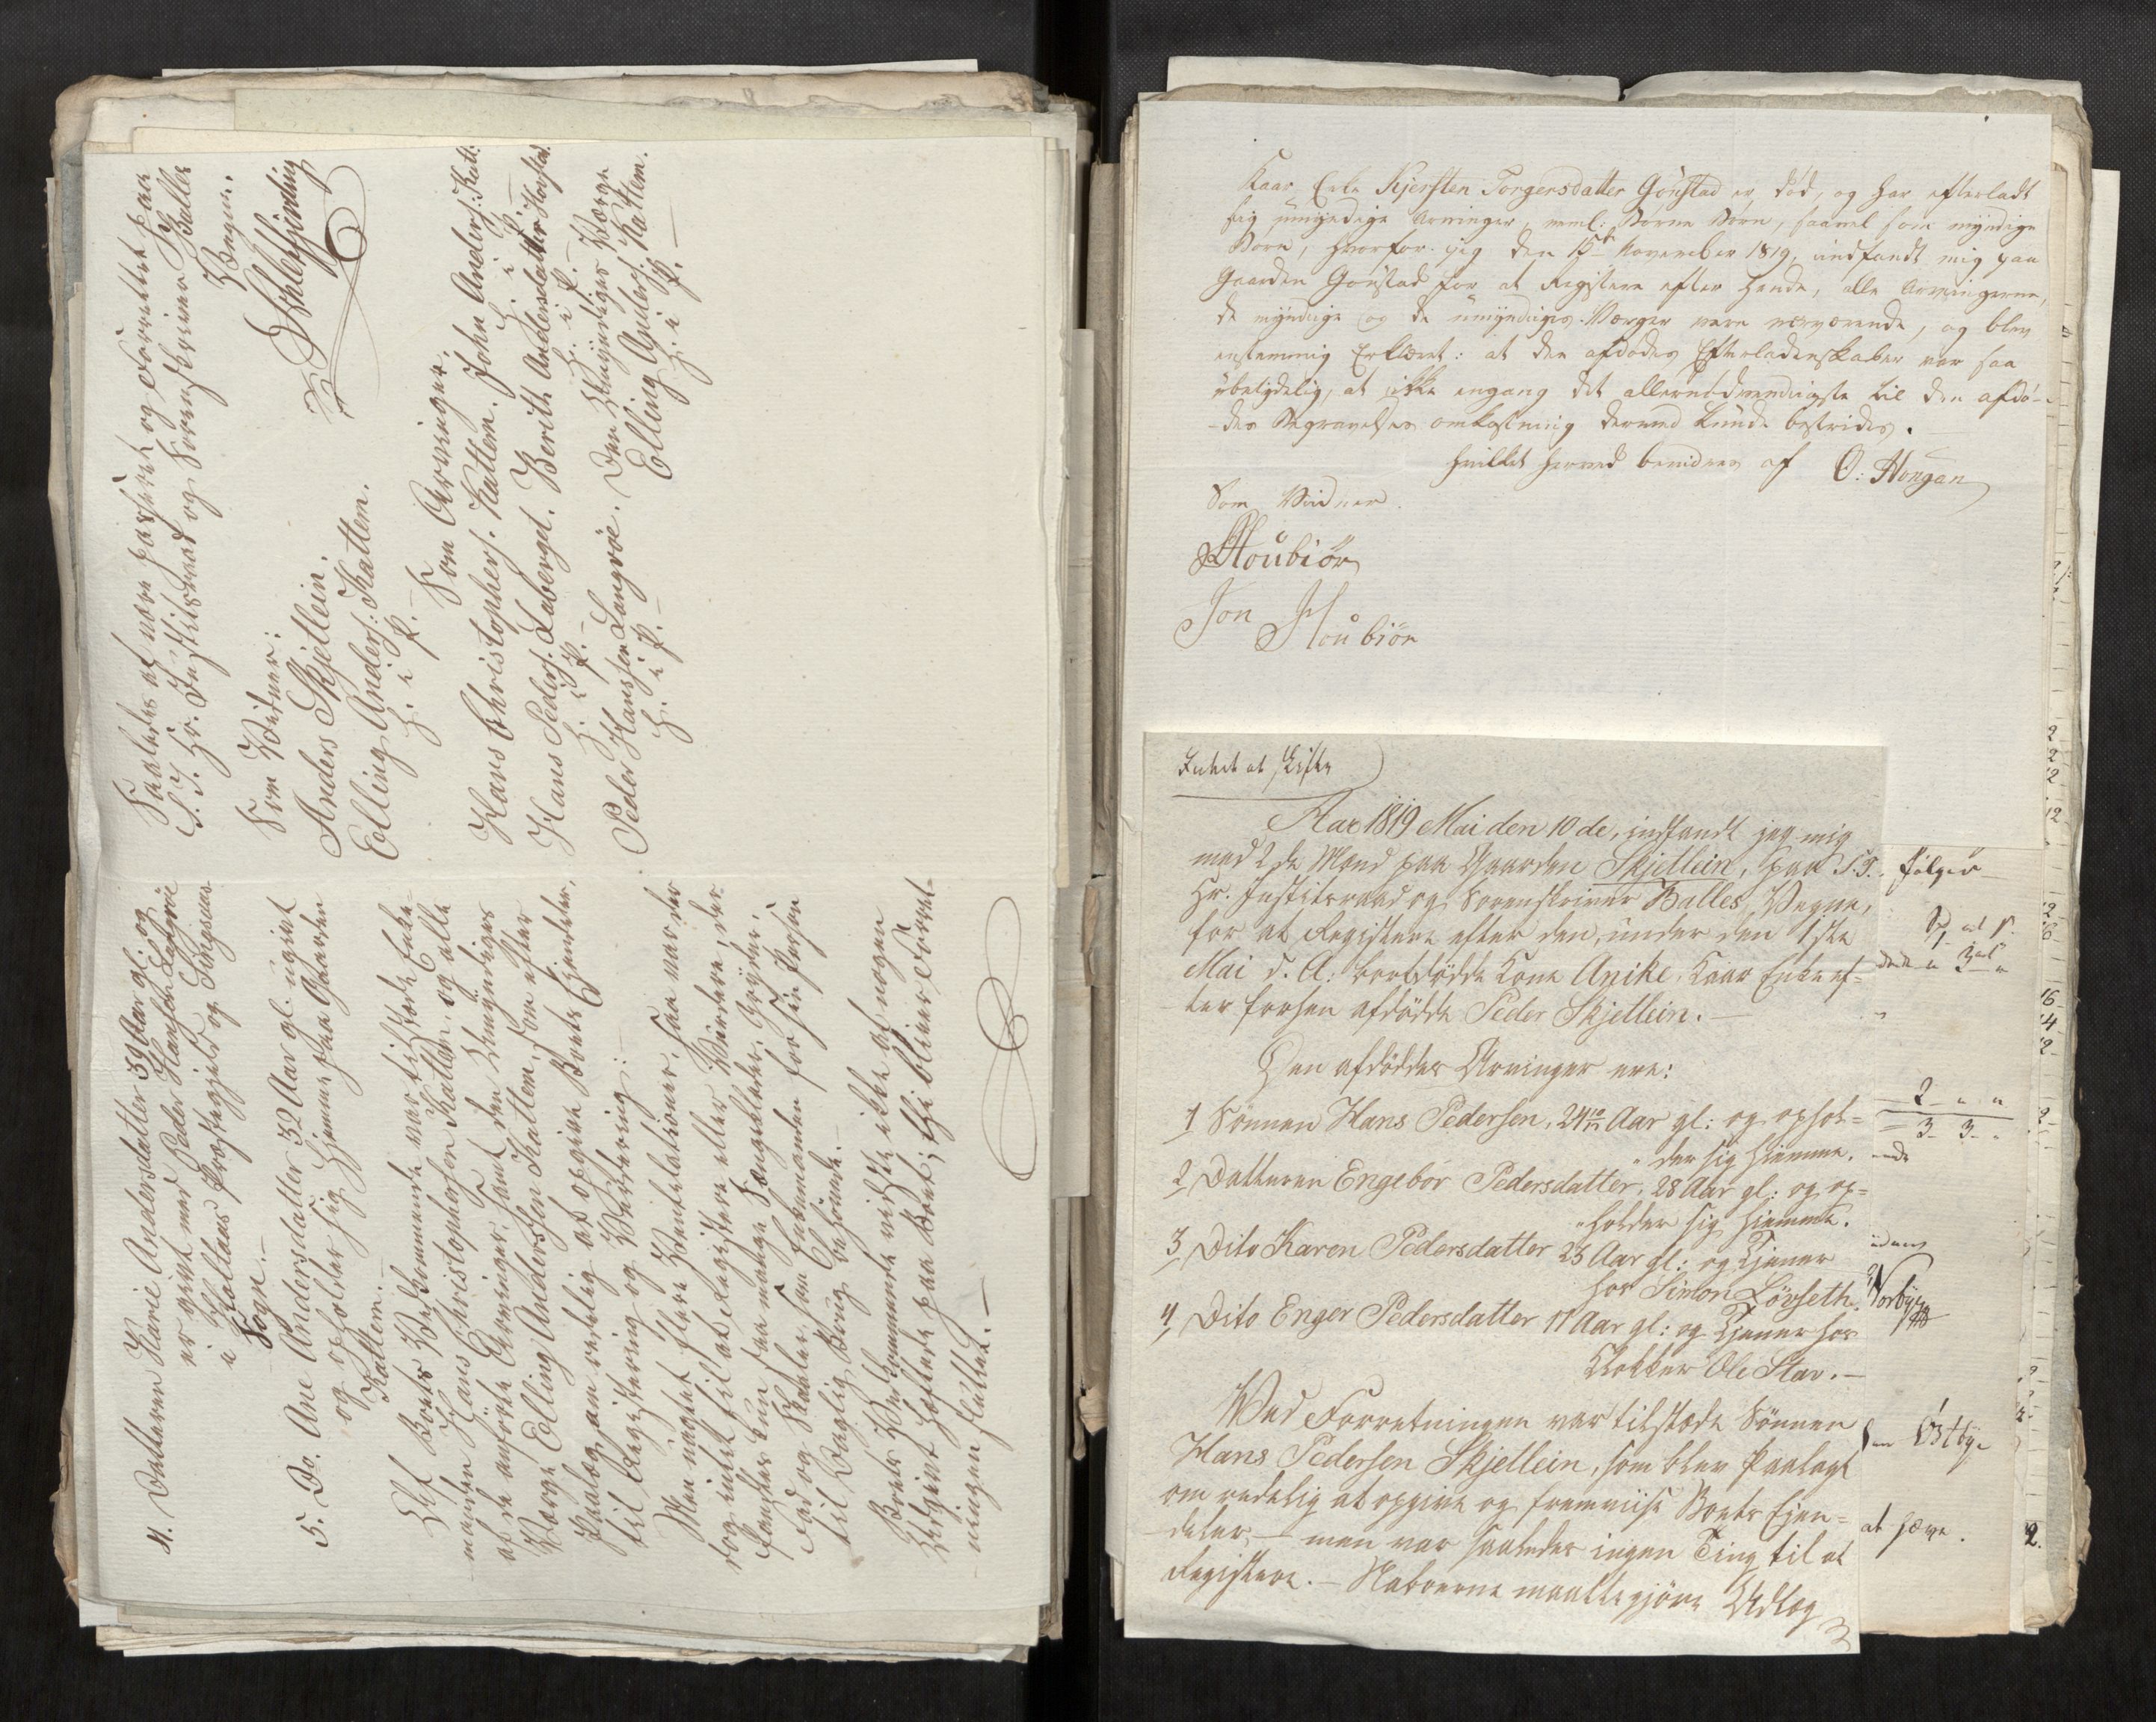 4. Datteren Marie Andersdatter 39 Aar gl. og
er givt med Peder Hansen Langrøe
i Holtaas Præstegjeld og Singsaas
Sogn.
5. Do. Ane Andersdatter 32 Aar gl. ugivt
og opholder sig hjemme paa Gaarden
Kattem.
Af Boets Vedkommende var tilstede Enke-
manden Hans Christophersen Kattem, og alle
de anførte Arvinger, samt den Umyndiges
Værge Elling Andersen Kattem, som efter
Paalæg om redelig at opgive Boets Ejendele,
til Registering og Vurdering:
Men uagtet flere Ventilationer, saa var der
dog intet til at Registere eller Vurdere, der
fandtes kun saa mange Sængeklæder, Gryder,
Fad og Skaaler, som Enkemanden for sin Person
til Daglig Brug behøvede.
Boets Vedkommende vidste ikke at nogen
Udgivt heftede paa Boet; thi bliver Forret-
ningen sluttet.
Saaledes at være passeret og Forrettet paa
S. T. Hr. Justitsraad og Sorenskriver Balles
Vegne.
Som Vidner:
Anders Skjellein.
Elling Anders: Kattem.
h. i P.
Som Arvinger.
Hans Christophers. Kattem. John Anders: Katt:
h. i P.
Hans Peders. Laberget. Berith Andersdatter Horstad
h. i P. h. i P.
Peder Hansen Langrøe. Den Umyndiges Værge
h. i P. Elling Anders: Kattem.
h. i P.
Kaar Enke Kjersten Torgersdatter Gonstad er død, og har efterladt
sig umyndige Arvinger, neml: Børne Børn, saavel som myndige
Børn, hvorfor jeg den 15de November 1819, indfandt mig paa
Gaarden Gonstad for at Registere efter hende, alle Arvingerne,
de myndige og de umyndiges Værger vare nærværende, og blev
enstemmig Erklæret: at den afdødes Efterladenskaber var saa
ubetydelig, at ikke engang det allernødvendigste til den afdø-
des Begravelses omkostning dermed kunde bestrides.
hvilket herved bevidnes af O: Hongan
Som Vidner.
Houbiør
Jon Houbiør
Intet at skifte
Aar 1819 Mai den 10de, indfandt jeg mig
med 2de Mænd paa Gaarden Skjellein, paa S. T.
Hr. Justitsraad og Sorenskriver Balles Vegne,
for at Registere efter den, under den 1ste
Mai d. A. bortdødde Kone Anike, Kaar Enke ef-
ter forhen afdødde Peder Skjellein.
Den afdøddes Arvinger ere:
1 Sønnen Hans Pedersen, 24 Aar gl: og ophol-
der sig hiemme.
2 Datteren Engebor Pedersdatter, 28 Aar gl: og op-
holder sig hiemme.
3 Dito Karen Pedersdatter 23 Aar gl: og Tjener
hos Simon Lövseth.
4 Dito Enger Pedersdatter 17 Aar gl: og Tjener hos
Klokker Ole Stav.
Ved Forretningen var tilstæde Sønnen
Hans Pedersen Skjellein, som blev paalagt
om redelig at opgive og fremviise Boets Ejen-
deler, men var saaledes ingen Ting til at
Registere. Naboerne maatte gjøre Udlæg
følger
2
3 3
Østbye
at hæve.